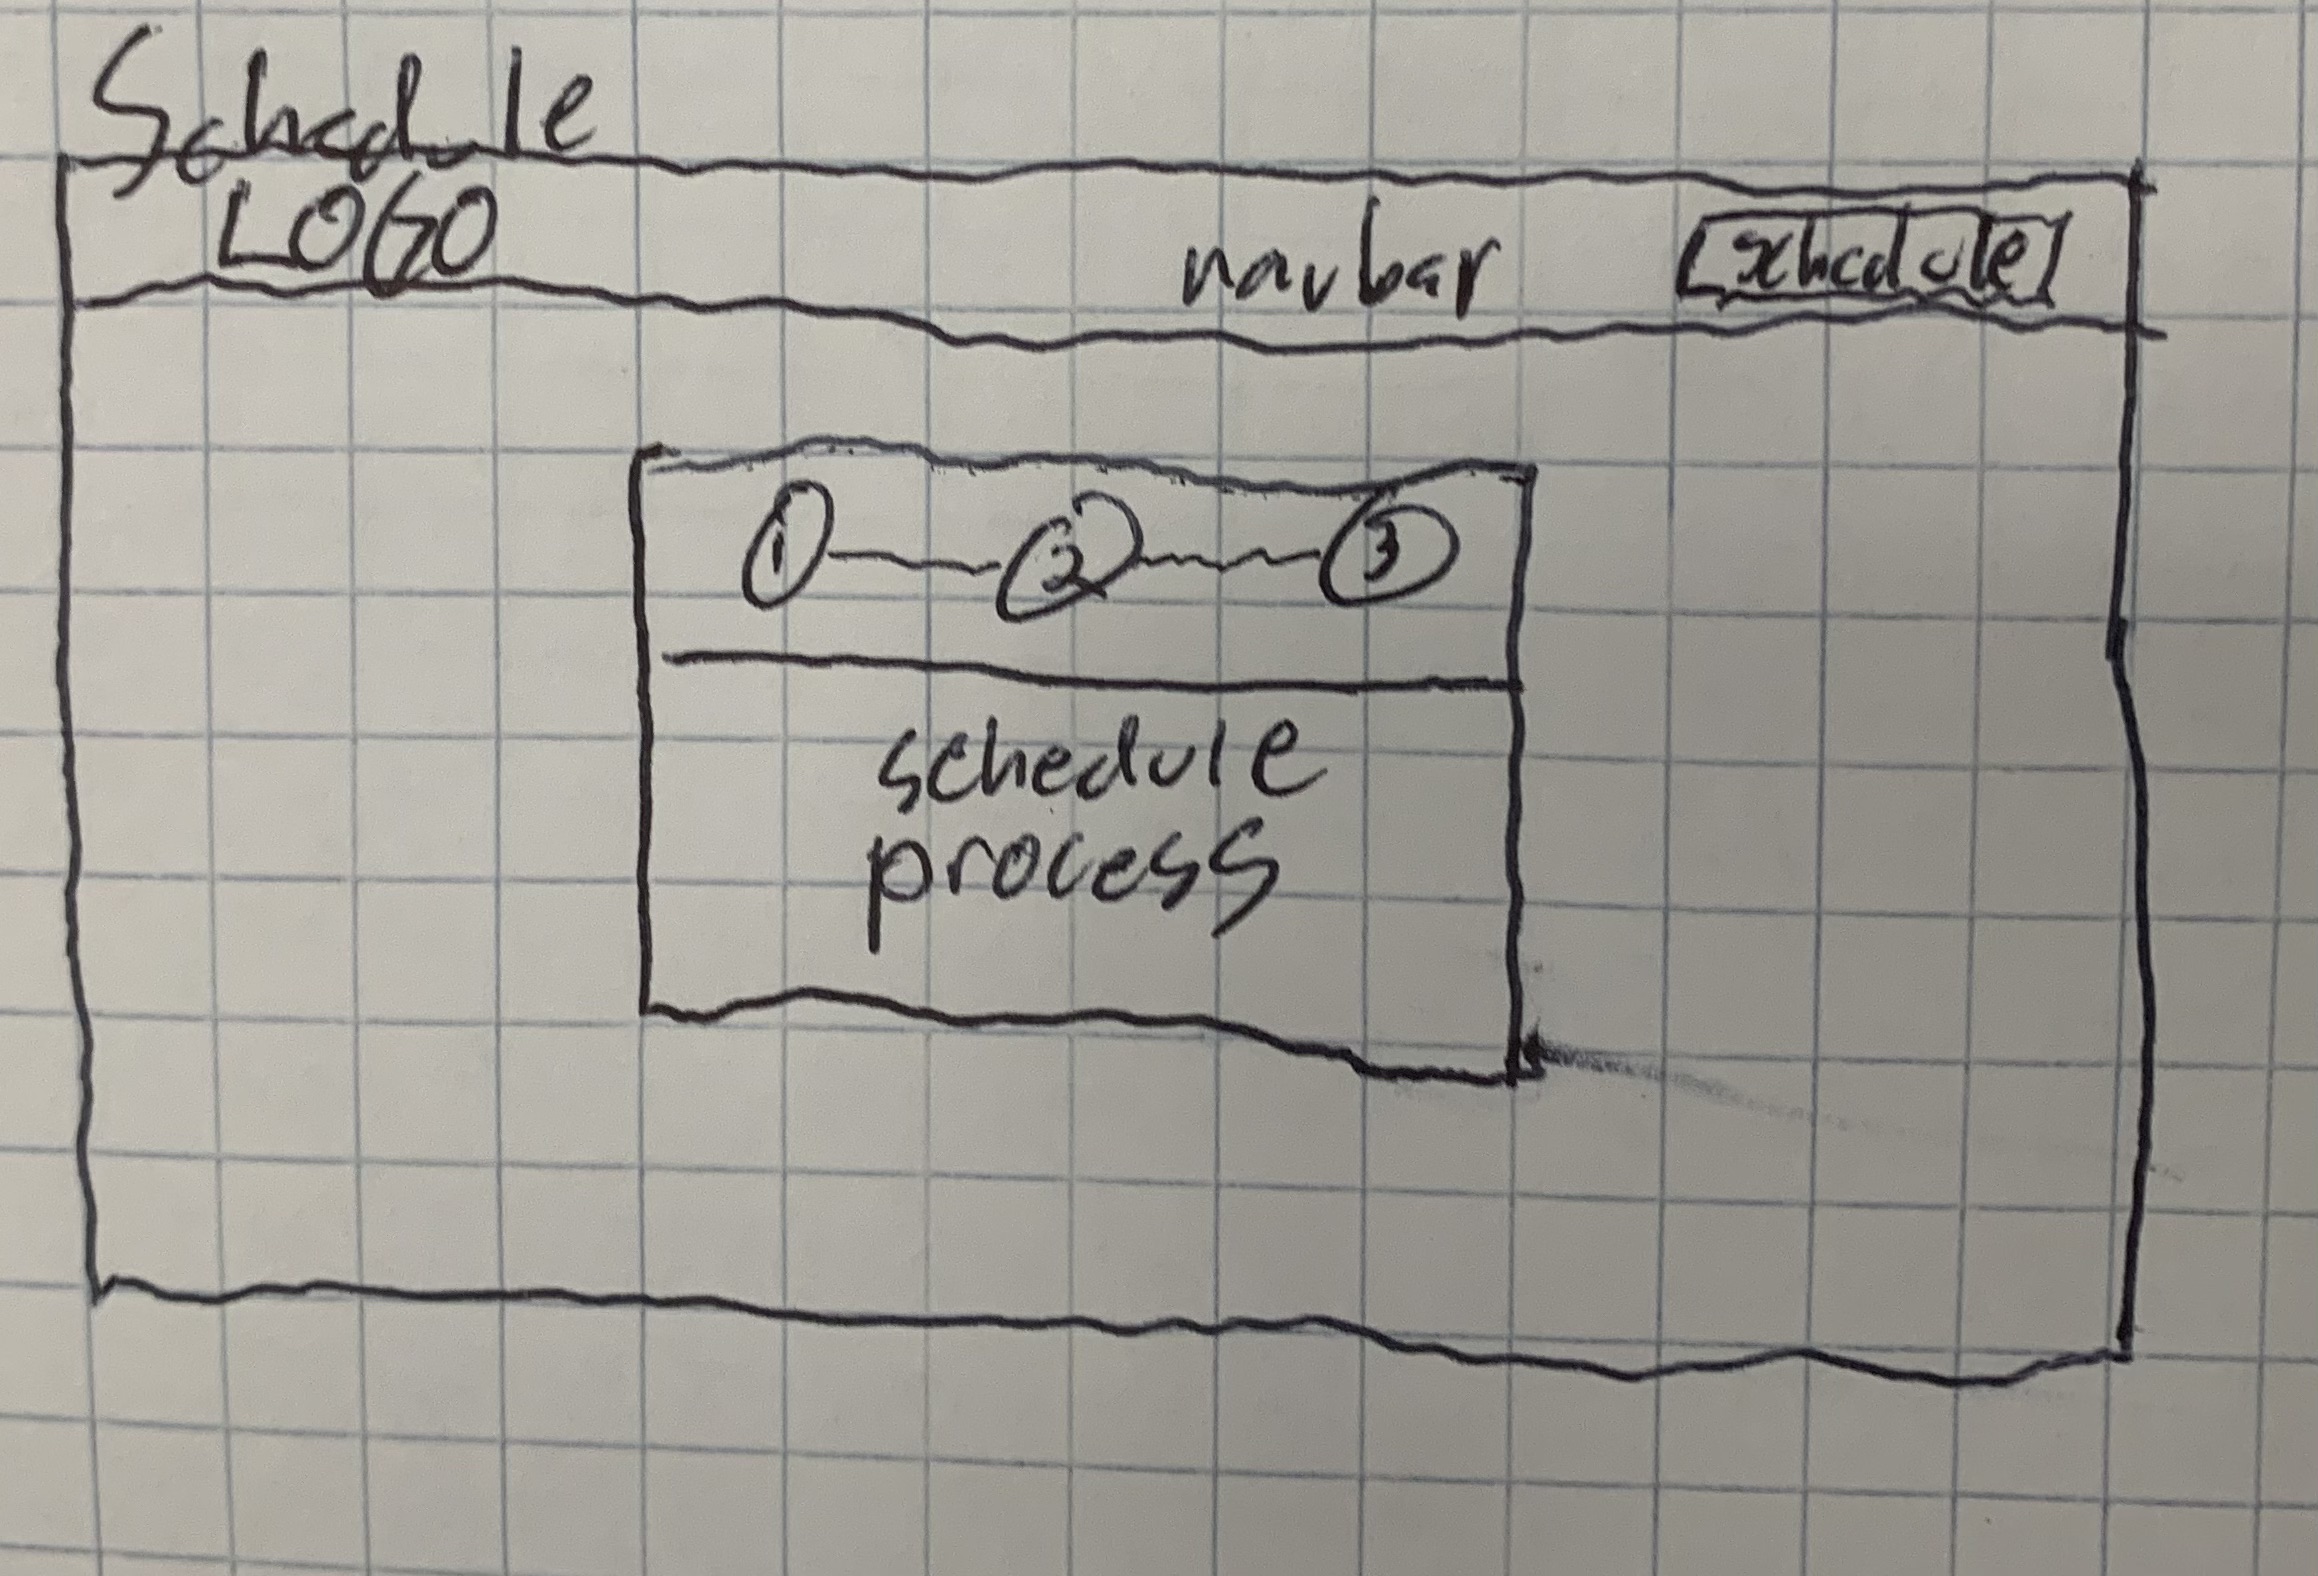 Schedule
LOGO navbar schedule
1 2 3
schedule
process